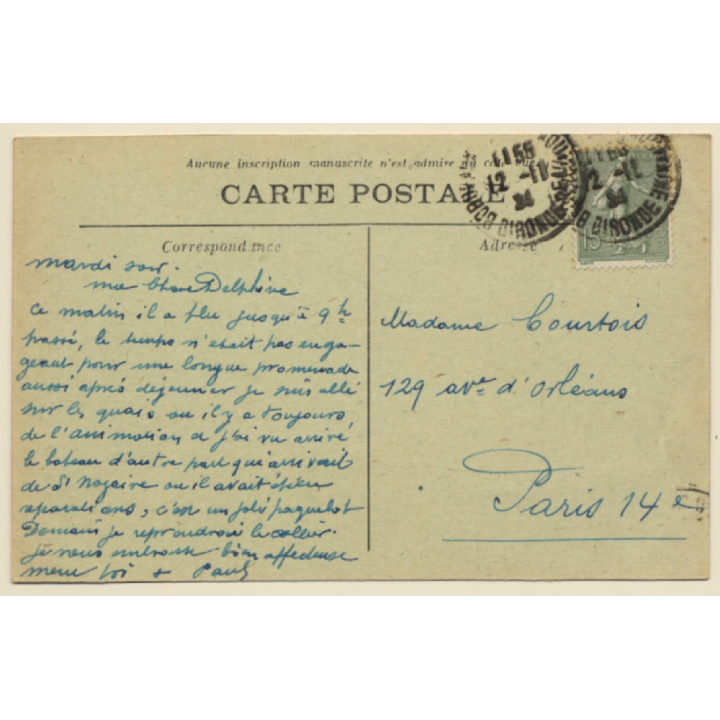 Aucune inscription manuscrite n'est admise du côté
CARTE POSTALE
Correspondance
Adresse
1155
12 -11
24
GIRONDE
1155
12 -11
24
GIRONDE
15
mardi soir.
ma chère Delphine
ce matin il a plu jusqu'à 9h
passé, le temps n'était pas enga-
geant pour une longue promenade
aussi après déjeuner je suis allé
sur les quais ou il y a toujours
de l'animation et j'ai vu arrivé
le bateau d'autre part qui arrivait
de St Nazaire ou il avait été en
réparations, c'est un joli paquebot
Demain je reprendrai le collier.
je vous embrasse bien affectueuse
ment toi + Paul
Madame Courtois
129 ave d'Orléans
Paris 14e